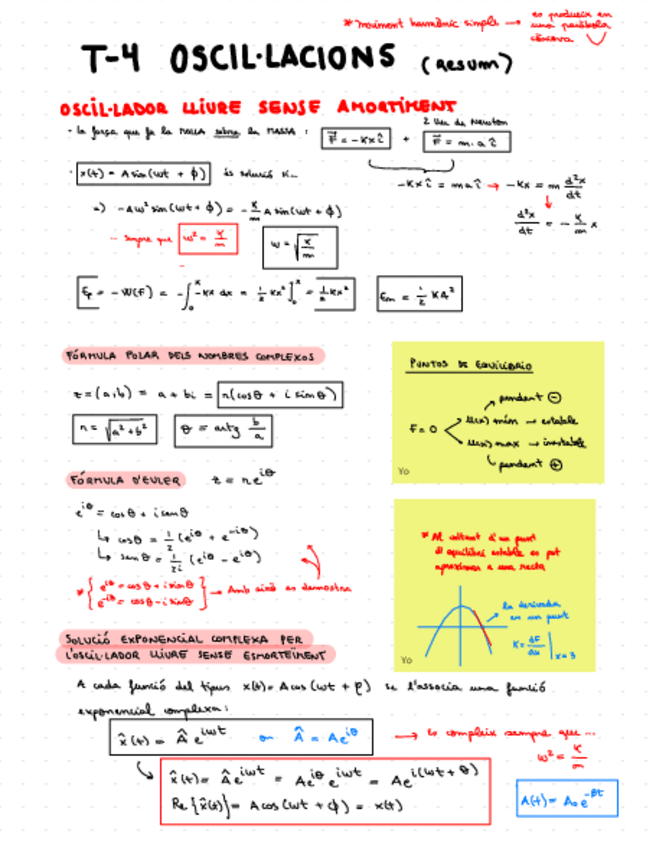 * Moviment harmònic simple → es produeix en una paràbola còncava
T-4 OSCIL·LACIONS (Resum)
OSCIL·LADOR LLIURE SENSE AMORTIMENT
· La força que fa la MOLLA sobre la MASSA : F⃗ = -Kx î + F⃗ = m·a î
2 Llei de Newton
· x(t) = A sin(wt + ϕ) és solució si...
-Kx î = m a î → -Kx = m d²x/dt
=) -Aw² sin(wt + ϕ) = -K/m A sin(wt + ϕ)
d²x/dt = -K/m x
- sempre que w² = K/m
w = √K/m
Ep = -W(F) = -∫₀ˣ -Kx dx = 1/2 Kx²]₀ˣ = 1/2 Kx²
Em = 1/2 KA²
FÓRMULA POLAR DELS NOMBRES COMPLEXOS
z = (a,b) = a + bi = r(cosθ + i sinθ)
r = √a²+b²
θ = artg b/a
PUNTOS DE EQUILIBRIO
pendent ⊖
F = 0
U(x) mín → estable
U(x) max → inestable
pendent ⊕
Yo
FÓRMULA D'EULER z = re^iθ
e^iθ = cosθ + i senθ
↳ cosθ = 1/2 (e^iθ + e^-iθ)
↳ senθ = 1/2i (e^iθ - e^-iθ)
* { e^iθ = cosθ + i sinθ
e^-iθ = cosθ - i sinθ } → Amb això es demostra
* Al voltant d'un punt
d'equilibri estable es pot
aproximar a una recta
la derivada
en un punt
K = dF/dx | x=3
Yo
SOLUCIÓ EXPONENCIAL COMPLEXA PER
L'OSCIL·LADOR LLIURE SENSE ESMORTEÏMENT
A cada funció del tipus x(t) = A cos(wt + φ) se l'associa una funció
exponencial complexa:
x̂(t) = Â e^iwt on Â = Ae^iθ
→ Es compleix sempre que ...
w² = K/m
x̂(t) = Âe^iwt = Ae^iθ e^iwt = Ae^i(wt + θ)
Re{x̂(t)} = A cos(wt + ϕ) = x(t)
A(t) = A₀e^-βt